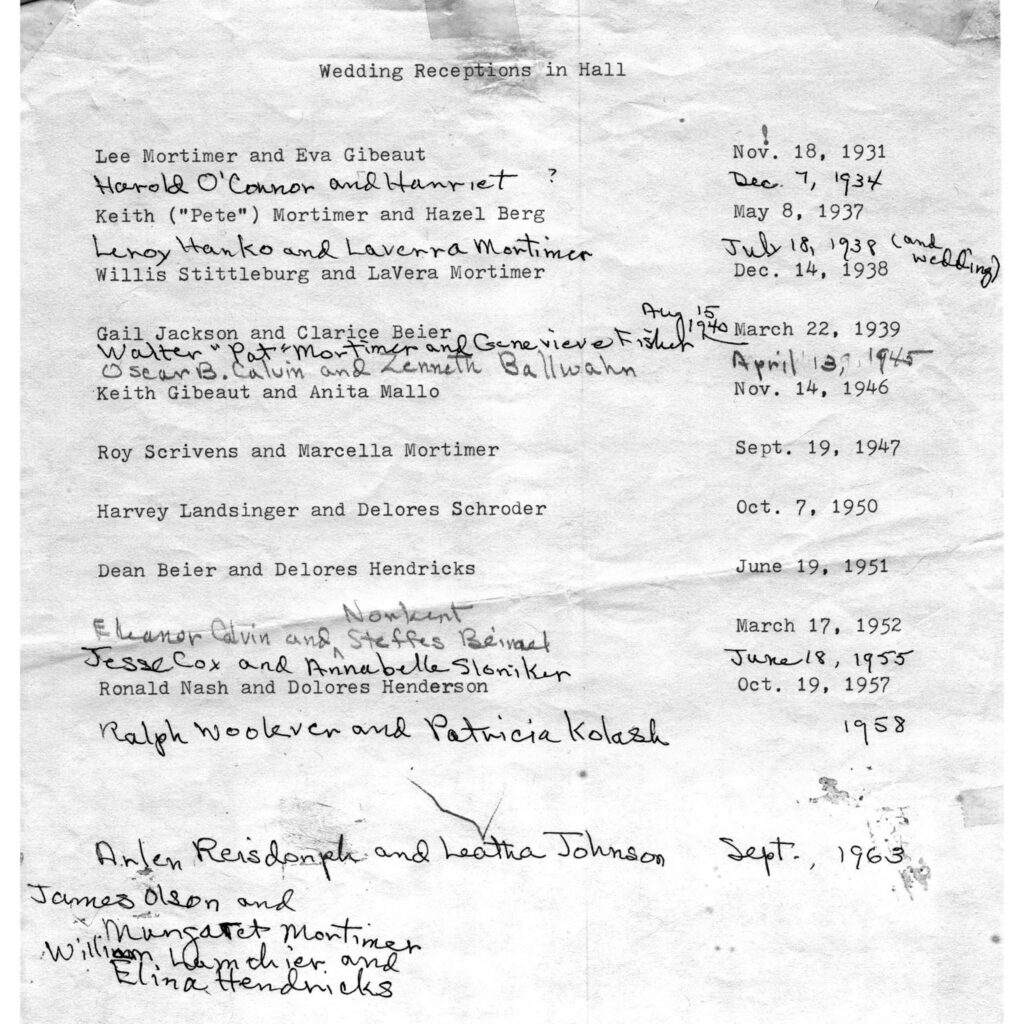 Wedding Receptions in Hall
Lee Mortimer and Eva Gibeaut Nov. 18, 1931
Harold O'Connor and Harriet ? Dec. 7, 1934
Keith ("Pete") Mortimer and Hazel Berg May 8, 1937
Leroy Hanko and Laverra Mortimer July 18, 1938 (and wedding)
Willis Stittleburg and LaVera Mortimer Dec. 14, 1938
Gail Jackson and Clarice Beier March 22, 1939
Walter "Pat" Mortimer and Genevieve Fisher Aug 15 1940
Oscar B. Calvin and Zenneth Ballwahn April 13, 1945
Keith Gibeaut and Anita Mallo Nov. 14, 1946
Roy Scrivens and Marcella Mortimer Sept. 19, 1947
Harvey Landsinger and Delores Schroder Oct. 7, 1950
Dean Beier and Delores Hendricks June 19, 1951
Eleanor Calvin and Norbert Steffes March 17, 1952
Jesse Cox and Annabelle Sloniker June 18, 1955
Ronald Nash and Dolores Henderson Oct. 19, 1957
Ralph Woolever and Patricia Kolash 1958
Arlen Reisdorph and Leatha Johnson Sept., 1963
James Olson and
Margaret Mortimer
William and
Elina Hendricks